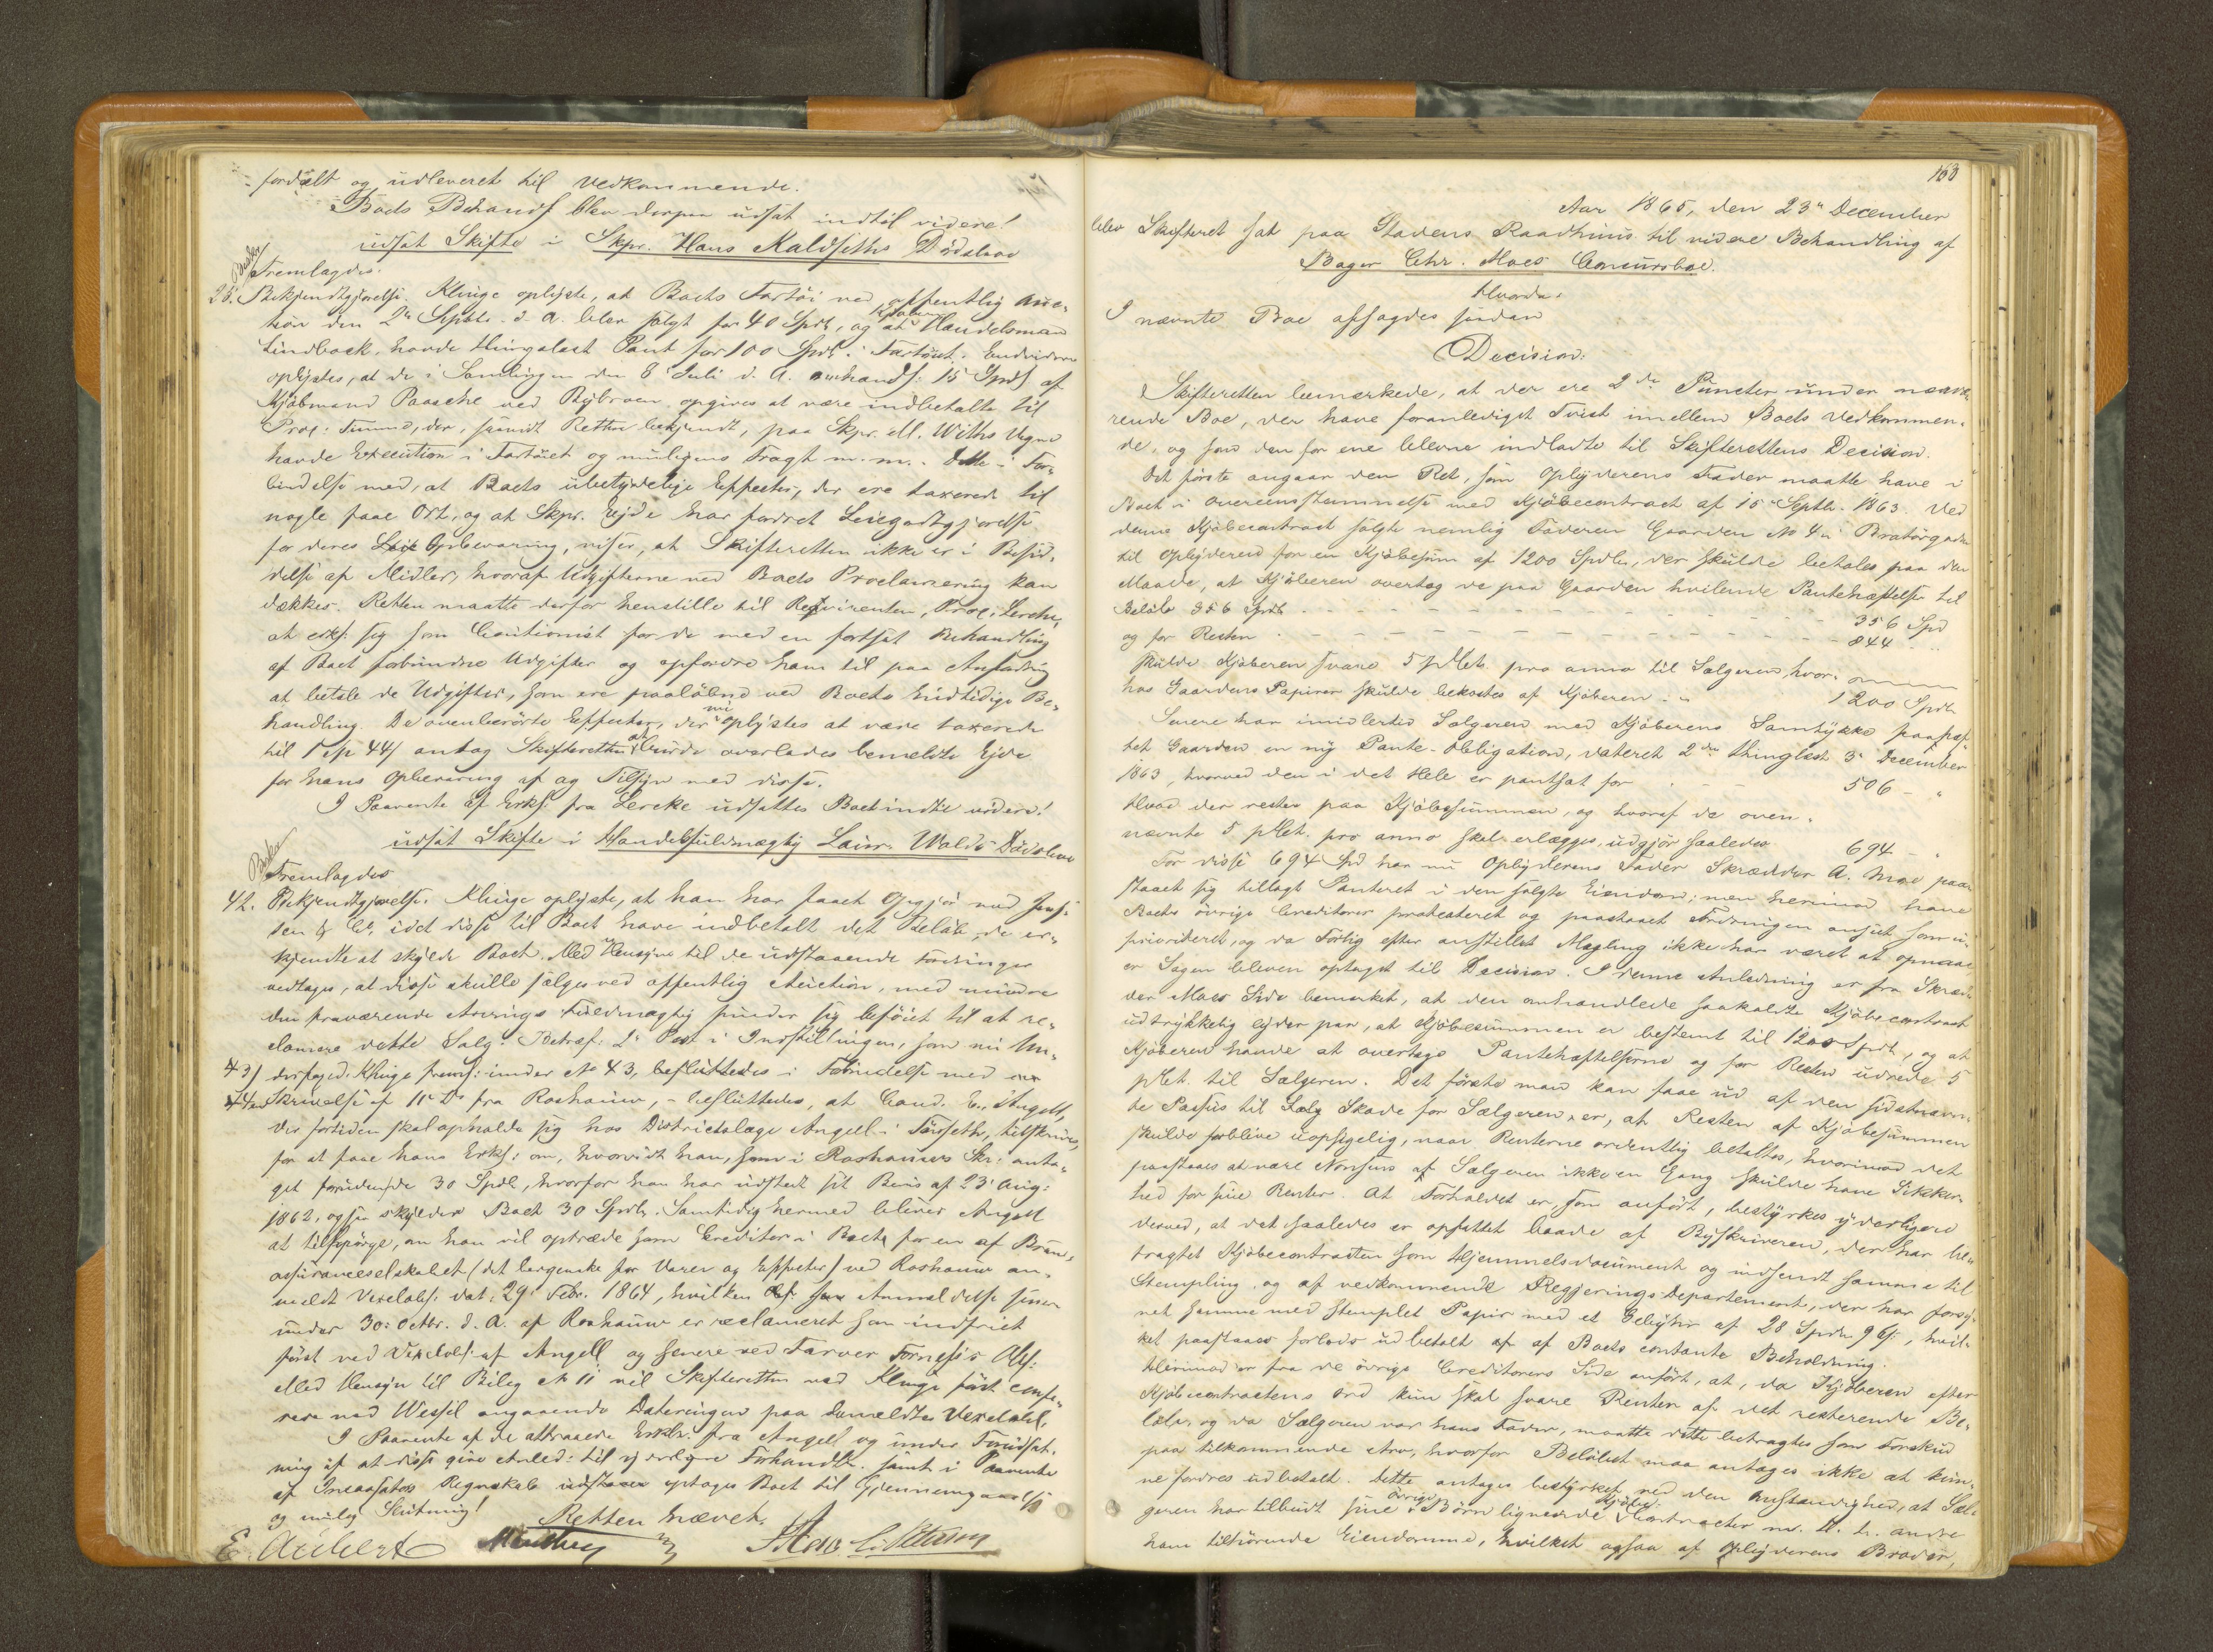 fordelt og udleveret til Vedkommende.
Boets Behandl blev derpaa udsat indtil videre!
udsat Skifte i Skpr. Hans Kaldseths Dödsboe
Fremlagdes.
25. Bekjendtgjörelse. Klinge oplyste, at Boets Fartöi ved offentlig Auc-
tion den 2n Septbr. d. A. blev solgt for 40 Spdl, og at Kjöberen Handelsmand
Lindbaek, havde thinglæst Pant for 100 Spdl. i Fartöiet. Endvidere
oplystes, at de i Samlingen den 8 Juli d. A. omhandl: 15 Spdl af
Kjöbmand Paasche ved Bybroen opgives at være indbetalte til
Proc: , der, saavidt Retten bekjendt, paa Skpr. M. Withs Vegne
havde Execution i Fartöiet og muligens Fragt m. m. Dette i For-
bindelse med, at Boets ubetydelige Effecter, der ere taxerede til
nogle faae Ort, og at Skpr. Ejde har fordret Leiegodtgjörelse
for deres Opbevaring, viser, at Skifteretten ikke er i Besid-
delse af Midler, hvoraf Udgifterne ved Boets Proclamering kan
dækkes. Retten maatte derfor henstille til Reqvirenten, Proc: Lerche,
at erkl: sig som Cautionist for de med en fortsat Behandling
af Boet forbundne Udgifter og opfordre ham til paa Anfordring
at betale de Udgifter, som ere paalöbne ved Boets hidtidige Be-
handling. De ovenberörte Effecter, der nu oplystes at være taxerede
til 44 antog Skifteretten at burde overlades bemeldte Ejde
for hans Opbevaring af og Tilsyn med disse.
I Paavente af Erkl: fra Lerche udsattes Boet indtil videre!
udsat Skifte i Handelsfuldmægtig Laur. Walds Dödsboe
Fremlagdes
42. Bekjendtgjörelse. Klinge oplyste, at han har faaet Opgjör med Jen-
sen & Co, idet disse til Boet have indbetalt det Belöb, de er-
kjendte at skylde Boet. Med Hensyn til de udstaaende Fordringer
vedtoges, at disse skulle sælges ved offentlig Auction, med mindre
den fraværende Arvings Fuldmægtig finder sig beföiet til at re-
clamere dette Salg. Betræf: 2n Post i Indstillingen, som nu
43) derpaa Klinge freml: under No 43, besluttedes i Forbindelse med en
44 Skrivelse af 11 Ds fra Roshauw, - besluttedes, at Cand. E. Angell,
der fortiden skal opholde sig hos Districtslæge Angell i , tilskrives,
for at faae hans Erkl: om, hvorvidt han, som i Roshauws Skr: anta-
get 30 Spdl, hvorfor han har udstedt sit Beviis af 23 Aug:
1862, ogsaa skylder Boet 30 Spdl. Samtidig hermed bliver Angell
at tilspörge, om han vil optræde som Creditor i Boet for en af Brand-
assuranceselskabet (det bergenske for Varer og Effecter) ved Roshauw an-
meldt Vexelobl: dat: 29 Febr. 1864, hvilken Anmeldelse
under 30: Octbr. d. A. af Roshauw er reclameret som indfriet
först ved Vexelobl: af Angell og senere ved Farver Fornæss's Obl:
Med Hensyn til Bilag No 11 vil Skifteretten ved Klinge först confe-
rere med Wessel angaaende Dateringen paa bemeldte Vexelobl.
I Paavente af de attraaede Erklr. fra Angell og under Forudsæt-
ning af at disse give Anled: til yderligere Forhandl. samt i Paavente
af Incassators Regnskab optages Boet til Gjennemgaaelse
og mulig Slutning!
Retten hævet.
E. Aubert
163
Aar 1865, den 23n December
blev Skifteret sat paa Stadens Raadhuus til videre Behandling af
Bager Chr. Moes Concursboe.
Hvorda:
I nævnte Boe afsagdes saadan
Decision:
Skifteretten bemærkede, at der ere 2de Puncter under nærvæ-
rende Boe, der have foranlediget Tvist imellem Boets Vedkommen-
de, og som derfor ere blevne indladte til Skifterettens Decision.
Det förste angaar den Ret, som Opbyderens Fader maatte have i
Boet i Overeensstemmelse med Kjöbecontract af 15 Septbr. 1863. Ved
denne Kjöbecontract solgte nemlig Faderen Gaarden No 4 i Bratörgaden
til Opbyderen for en Kjöbesum af 1200 Spdlr, der skulde betales paa den
Maade, at Kjöberen overtog de paa Gaarden hvilende Panteheftelser til
Belöb 356 Spdl - - - - - - 356 Spd
og for Resten - - - - - - 844 "
skulde Kjöberen svare 5 pCt. pro anno til Sælgeren, hvor-
hos Gaardens Papirer skulde bekostes af Kjöberen - " 1200 Spdl
Senere har imidlertid Sælgeren med Kjöberens Samtykke paahef-
tet Gaarden en ny Pante-Obligation, dateret 2den thinglæst 3 December
1863, hvorved den i det Hele er pantsat for - - 506 - "
Hvad der rester paa Kjöbesummen, og hvoraf de oven-
nævnte 5 pCt. pro anno skal erlægges, udgjör saaledes 694 - "
For disse 694 Spd har nu Opbyderens Fader Skrædder A. Moe paa-
staaet sig tillagt Panteret i den solgte Eiendom; men herimod have
Boets övrige Creditorer protesteret og paastaaet Fordringen anseet som u-
prioriteret, og da Forlig efter anstillet Mægling ikke har været at opnaae
er Sagen bleven optaget til Decision. I denne Anledning er fra Skræd-
der Moes Side bemærket, at den omhandlede saakaldte Kjöbecontract
udtrykkelig lyder paa, at Kjöbesummen er bestemt til 1200 Spdl, og at
Kjöberen havde at overtage Pantehæftelserne og for Resten udrede 5
pCt. til Sælgeren. Det förste man kan faae ud af den sidstnævn-
te Passus til Sælg Skade for Sælgeren, er, at Resten af Kjöbesummen
skulde forblive uopsigelig, naar Renterne ordentlig betaltes, hvorimod det
paastaaes at være Nonsens at Sælgeren ikke en Gang skulde have Sikker-
hed for sine Renter. At Forholdet er, som anfört, bestyrkes yderligere
derved, at det saaledes er opfattet baade af Byskriveren, der har be-
tragtet Kjöbecontracten som Hjemmelsdocument og indsendt samme til
Stempling, og af vedkommende Regjerings Departement, der har forsy-
net samme med stemplet Papir med et Gebyhr af 28 Spdl 96 s, hvil-
ket paastaaes forlods udbetalt af af Boets contante Beholdning.
Herimod er fra de övrige Creditorers Side anfört, at, da Kjöberen efter
Kjöbecontractens Ord kun skal svare Renter af det resterende Be-
löb, og da Sælgeren var hans Fader, maatte dette betragtes som Forskud
paa tilkommende Arv, hvorfor Belöbet maa antages ikke at kun-
ne fordres udbetalt. Dette antages bestyrket ved den Omstændighed, at Sæl-
geren har tilbudt sine övrige Börn lignende Kjöbe-Contracter m. H. t. andre
ham tilhörende Eiendomme, hvilket ogsaa af Opbyderens Broder,